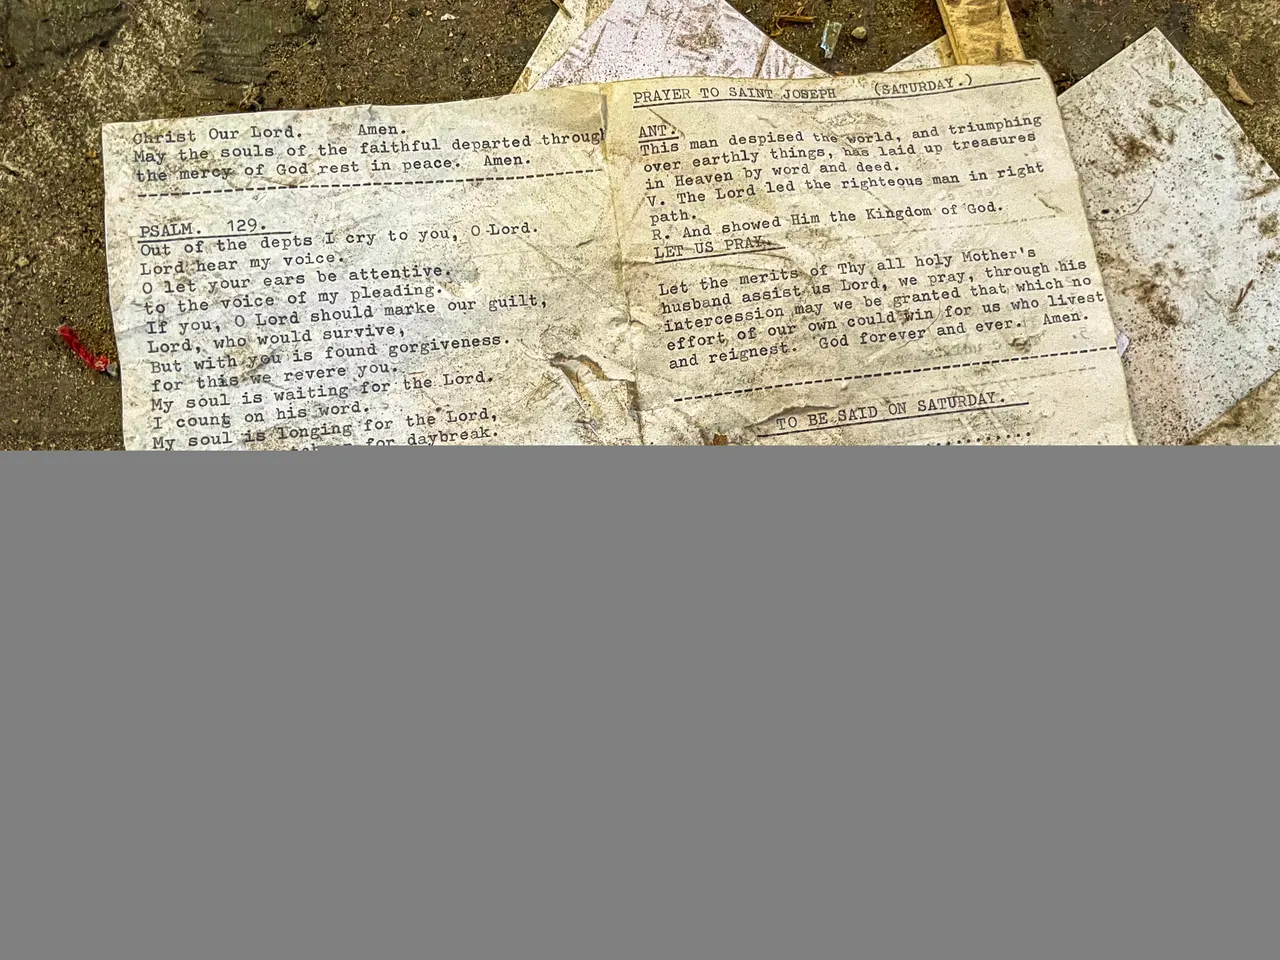 Christ Our Lord. Amen.
May the souls of the faithful departed throug
the mercy of God rest in peace. Amen.
PSALM. 129.
Out of the depts I cry to you, O Lord.
Lord hear my voice.
O let your ears be attentive.
to the voice of my pleading.
If you, O Lord should marke our guilt,
Lord, who would survive,
But with you is found gorgiveness.
for this we revere you.
My soul is waiting for the Lord.
I count on his word.
My soul is longing for the Lord,
for daybreak.
PRAYER TO SAINT JOSEPH (SATURDAY.)
ANT.
This man despised the world, and triumphing
over earthly things, has laid up treasures
in Heaven by word and deed.
V. The Lord led the righteous man in right
path.
R. And showed Him the Kingdom of God.
LET US PRAY.
Let the merits of Thy all holy Mother's
husband assist us Lord, we pray, through his
intercession may we be granted that which no
effort of our own could win for us who livest
and reignest. God forever and ever. Amen.
TO BE SAID ON SATURDAY.